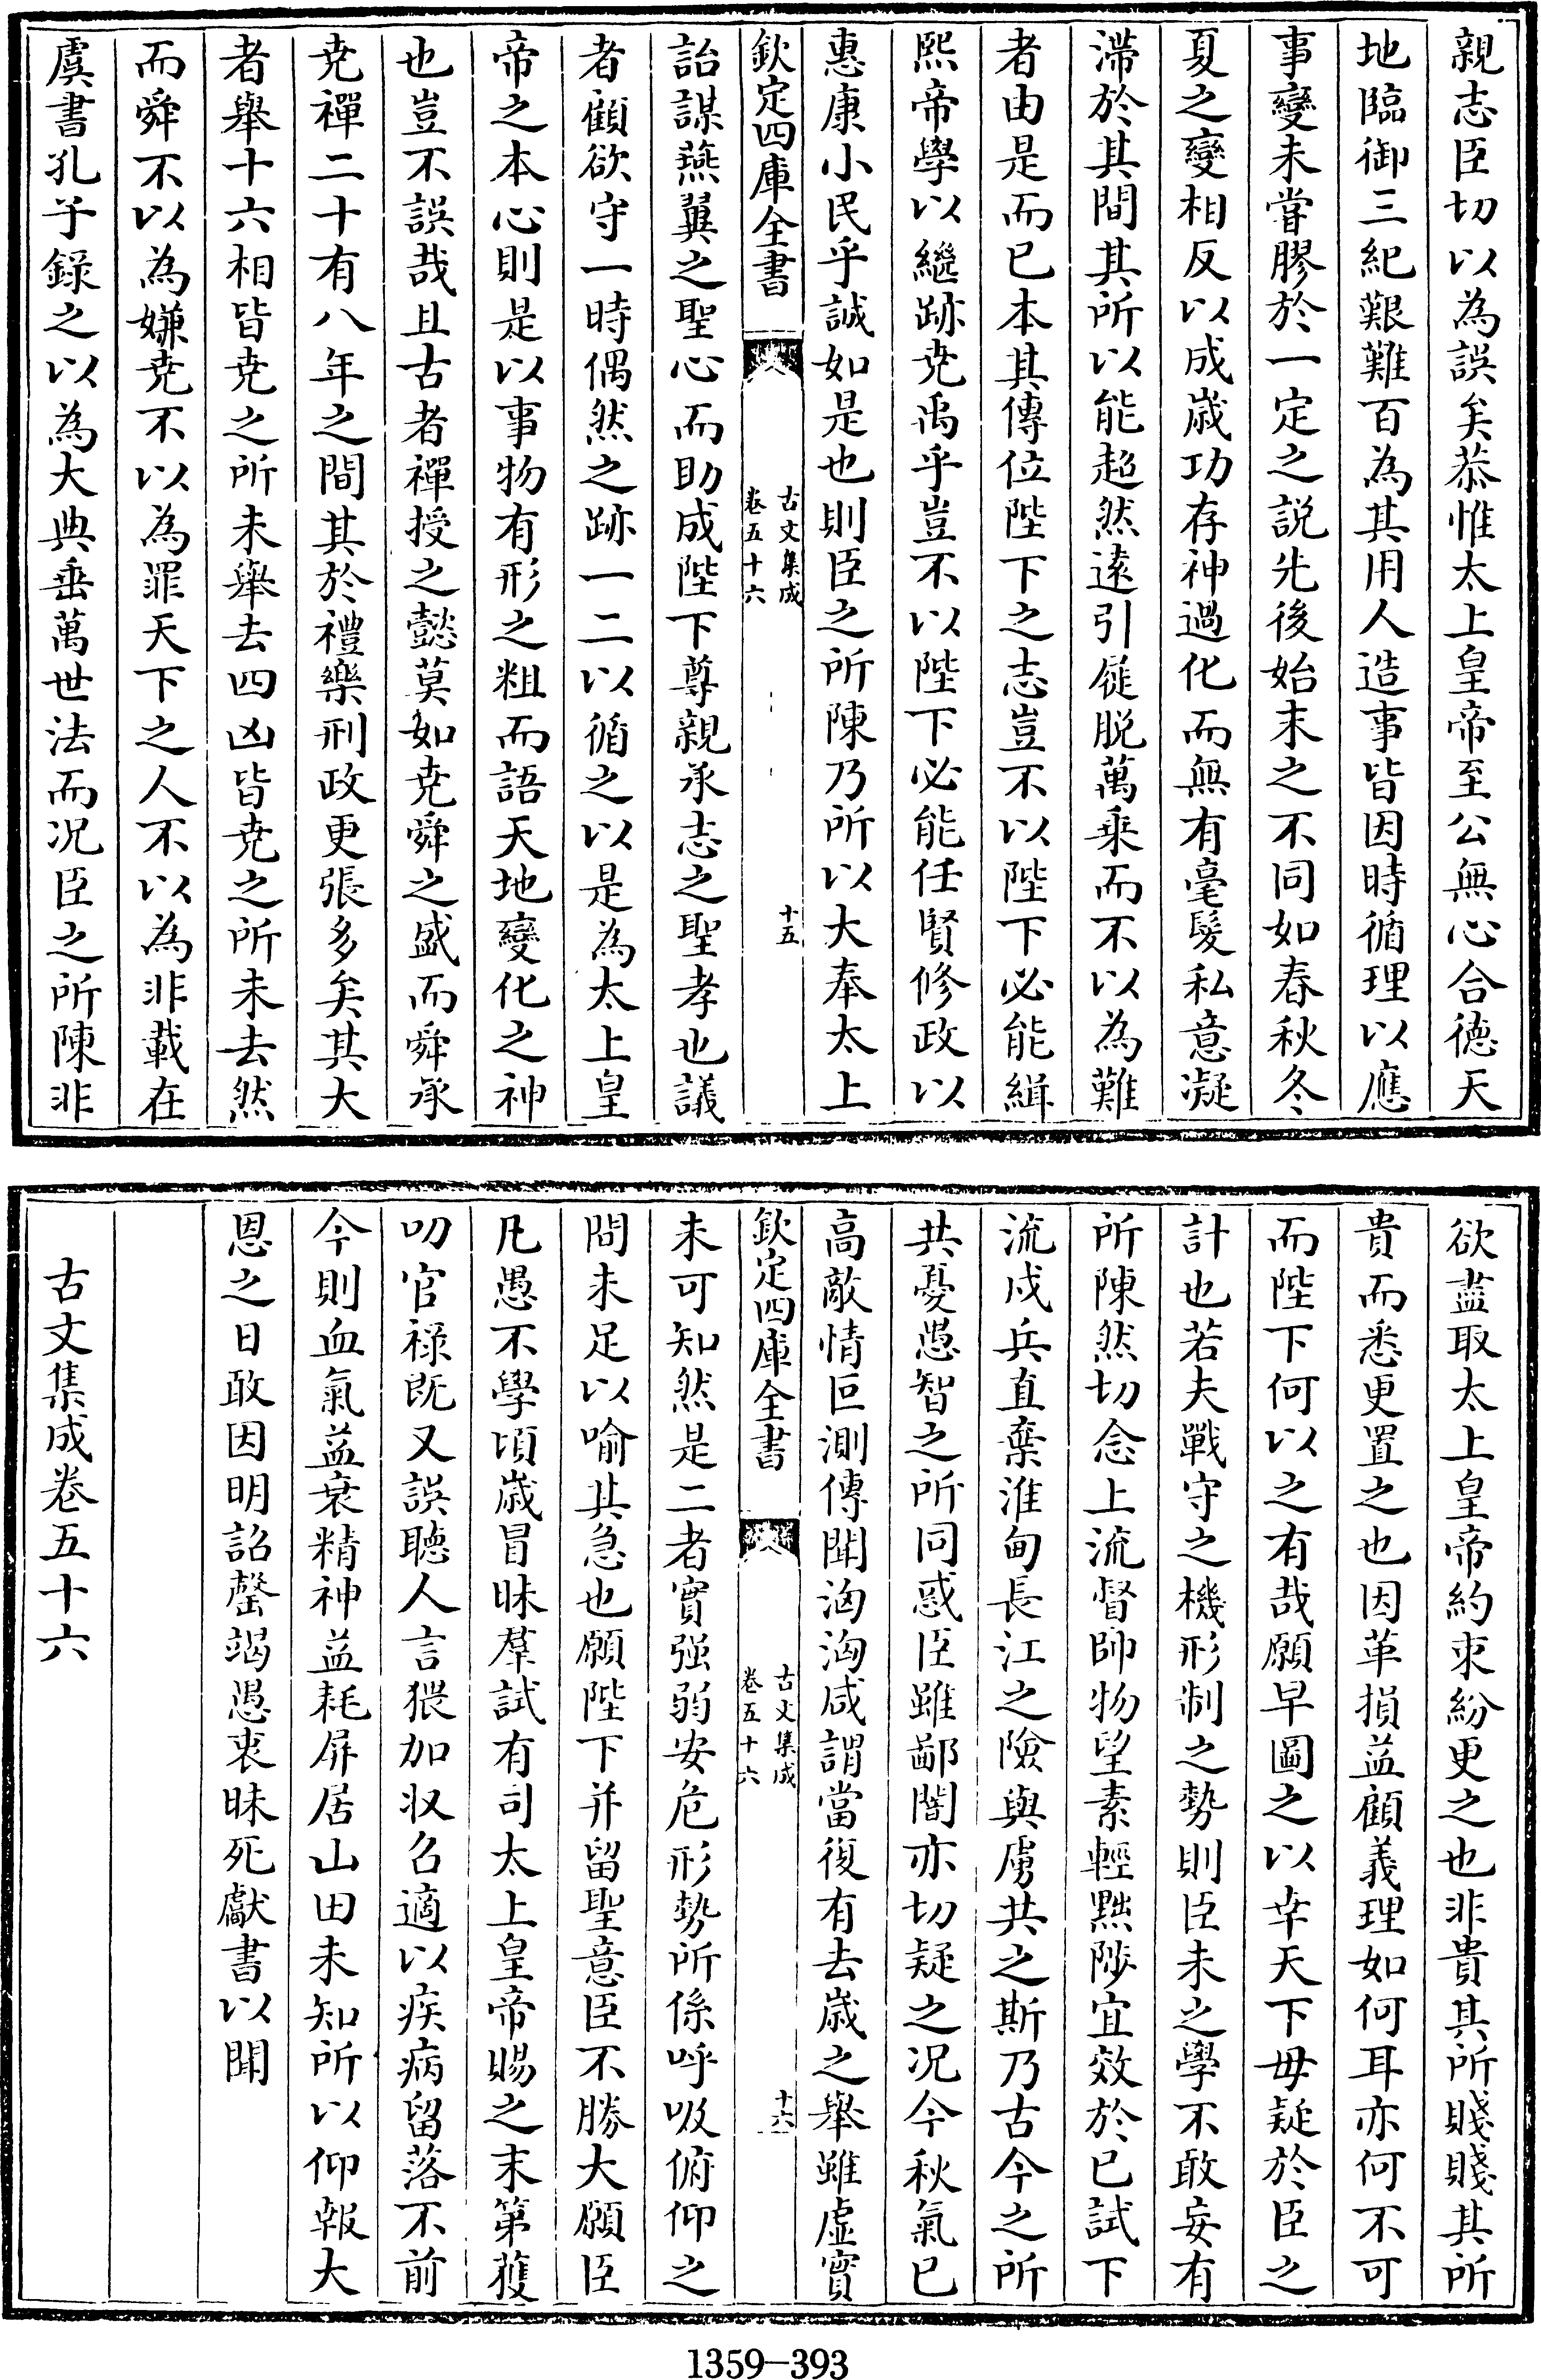 親志臣切以為誤矣恭惟太上皇帝至公無心合德天
地臨御三紀艱難百為其用人造事皆因時循理以應
事變未甞膠於一定之説先後始末之不同如春秋冬
夏之變相反以成歳功存神過化而無有毫髪私意凝
滯於其間其所以能超然逺引屣脱萬乗而不以為難
者由是而已本其傳位陛下之志豈不以陛下必能緝
熙帝學以繼跡尭禹乎豈不以陛下必能任賢修政以
惠康小民乎誠如是也則臣之所陳乃所以大奉太上
欽定四庫全書
古文集成
卷五十六
十五
詒謀燕翼之聖心而助成陛下尊親承志之聖孝也議
者顧欲守一時偶然之跡一二以循之以是為太上皇
帝之本心則是以事物有形之粗而語天地變化之神
也豈不誤哉且古者禪授之懿莫如尭舜之盛而舜承
尭禪二十有八年之間其於禮樂刑政更張多矣其大
者舉十六相皆尭之所未舉去四凶皆尭之所未去然
而舜不以為嫌尭不以為罪天下之人不以為非載在
虞書孔子錄之以為大典垂萬世法而况臣之所陳非
欲盡取太上皇帝約束紛更之也非貴其所賤賤其所
貴而悉更置之也因革損益顧義理如何耳亦何不可
而陛下何以之有哉願早圖之以幸天下毋疑於臣之
計也若夫戰守之機形制之勢則臣未之學不敢妄有
所陳然切念上流督帥物望素輕黙陟宜效於已試下
流戍兵直棄淮甸長江之險與虜共之斯乃古今之所
共憂愚智之所同惑臣雖鄙闇亦切疑之况今秋氣已
高敵情叵測傳聞洶洶咸謂當復有去歳之舉雖虛實
欽定四庫全書
古文集成
卷五十六
十六
未可知然是二者實强弱安危形勢所係呼吸俯仰之
間未足以喻其急也願陛下并留聖意臣不勝大願臣
凡愚不學頃歳冒昧羣試有司太上皇帝賜之末第獲
叨官禄既又誤聽人言猥加收召適以疾病留落不前
今則血氣益衰精神益耗屏居山田未知所以仰報大
恩之日敢因明詔罄竭愚衷昧死獻書以聞
古文集成卷五十六
1359-393